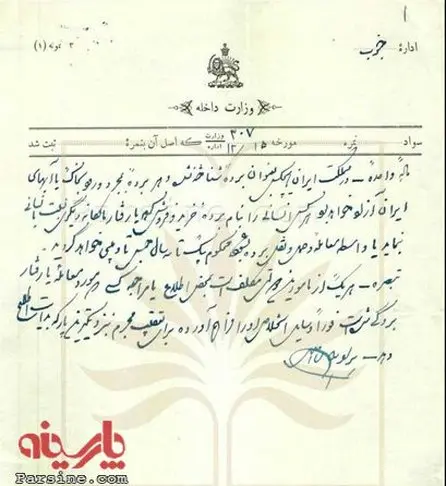 ۱
ادارهٔ جنوب
نمونه (۱)
وزارت داخله
سواد نمره مورخه ۱۵ / ۱۲ ۳۰۷ وزارت اداره که اصل آن بنمرهٔ ثبت شد
مادهٔ واحده - در مملکت ایران هیچکس بعنوان برده شناخته نشده و هر برده بمجرد ورود بخاک یا آبهای
ایران آزاد خواهد بود هر کس انسانی را بنام برده خرید و فروش کرده یا رفتار مالکانه دیگری نسبت بانسانی
نماید یا واسطه معامله و حمل و نقل برده بشود محکوم بیک تا سه سال حبس تادیبی خواهد گردید
تبصره - هر یک از مامورین دولتی مکلف است بمحض اطلاع یا مراجعه کسی که مورد معامله یا رفتار
بردگی شده است فوراً وسایل استخلاص او را فراهم آورده برای تعقیب مجرم نیز بنزدیکترین پارکه بدایت اطلاع
دهد -
پارسینه
Parsine.com